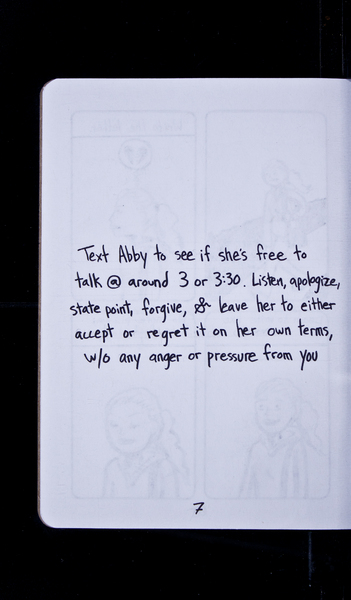 Text Abby to see if she's free to
talk @ around 3 or 3:30. Listen, apologize,
state point, forgive, & leave her to either
accept or regret it on her own terms,
w/o any anger or pressure from you
7